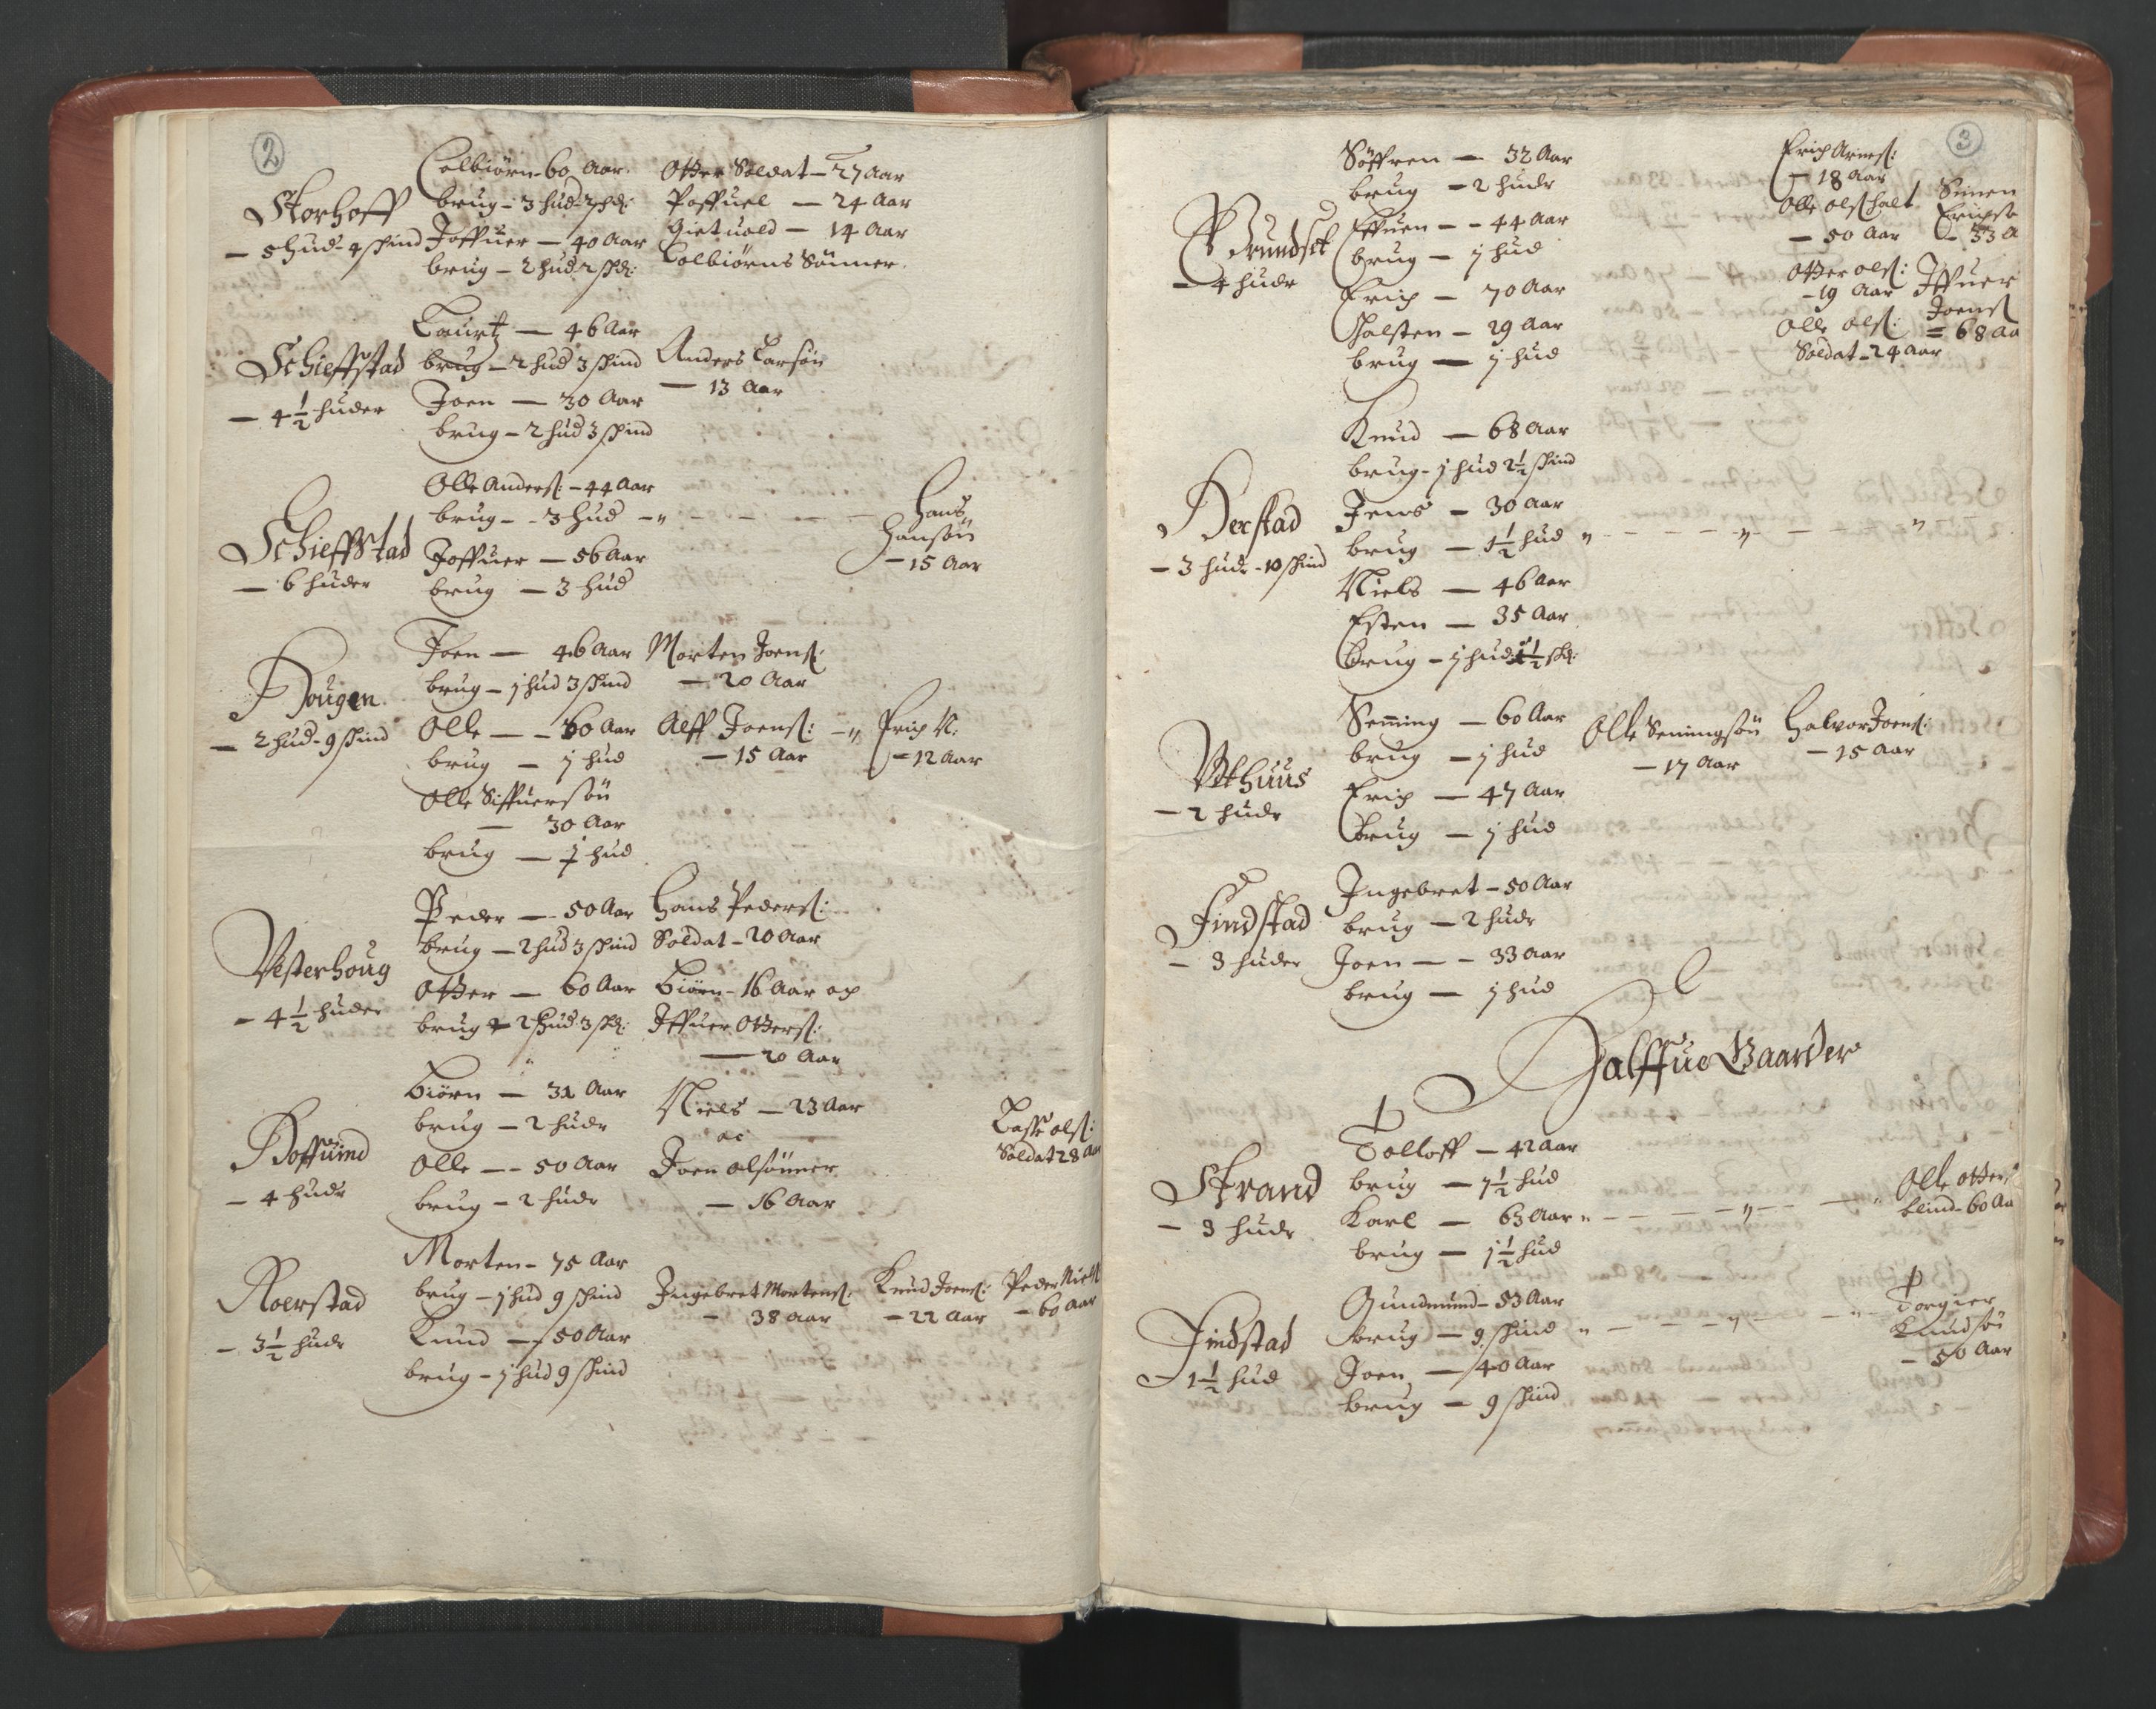 2
Storhoff
– 5 hud - 4 skind
Colbiørn – 60 Aar
brug – 3 hud 2 skd:
Joffuer – 40 Aar
brug – 2 hud 2 skd:
Otter Soldat – 27 Aar
Poffuel – 24 Aar
Gietuold – 14 Aar
Colbiørns Sönner
Schieffstad
– 4 1/2 huder
Laurtz – 46 Aar
brug – 2 hud 3 skind
Joen – 30 Aar
brug – 2 hud 3 skind
Anders Larsøn
– 13 Aar
Schieffstad
– 6 huder
Olle Anders: – 44 Aar
brug – 3 hud
Joffuer – 56 Aar
brug – 3 hud
Hans
Hansøn
– 15 Aar
Hougen
– 2 hud - 9 skind
Joen – 46 Aar
brug – j hud 3 skind
Olle – 60 Aar
brug – j hud
Olle Siffuersøn
– 30 Aar
brug – j hud
Morten Joens:
– 20 Aar
Alff Joens:
– 15 Aar
Erich N:
– 12 Aar
Vesterhoug
– 4 1/2 huder
Peder – 50 Aar
brug – 2 hud 3 skind
Otter – 60 Aar
brug – 2 hud 3 skd:
Hans Peders:
Soldat – 20 Aar
Biørn – 16 Aar och
Iffuer Otters:
– 20 Aar
Hoffuind
– 4 hude
Biörn – 31 Aar
brug – 2 hude
Olle – 50 Aar
brug – 2 hude
Niels – 23 Aar
oc
Joen olsönner
– 16 Aar
Lasse ols:
Soldat 28 Aar
Roerstad
– 3 1/2 hude
Morten – 75 Aar
brug – j hud 9 skind
Knud – 50 Aar
brug – j hud 9 skind
Ingebret Mortens:
– 38 aar
Knud Joens:
– 22 Aar
Peder Niels
– 60 Aar
3
Grundset
– 4 hude
Söffren – 32 Aar
brug – 2 hude
Effuen – 44 Aar
brug – j hud
Erich – 70 Aar
Halsten – 29 Aar
brug – j hud
Erich Arnes:
– 18 Aar
Olle ols halt
– 50 Aar
Otter ols:
– 19 Aar
Olle ols:
Soldat – 24 Aar
Simen
Erichsø
– 33 A
Iffuer
Joens
= 68 Aa
Herstad
– 3 hude - 10 skind
Knud – 68 Aar
brug – j hud 2 1/2 skind
Jens – 30 Aar
brug – 1 1/2 hud
Niels – 46 Aar
Esten – 35 Aar
brug – j hud 1 1/2 skd:
Vthuus
– 2 hude
Semming – 60 Aar
brug – j hud
Erich – 47 Aar
brug – j hud
Olle Semingsøn
– 17 Aar
Halvor Joens:
– 15 Aar
Findstad
– 3 huder
Ingebret – 50 Aar
brug – 2 hude
Joen – 33 aar
brug – j hud
Halffue Gaarder
Strand
– 3 hude
Tolloff – 42 aar
brug – 1 1/2 hud
Karl – 63 Aar
brug – j 1/2 hud
Olle otters
blind – 60 Aa
Findstad
– 1 1/2 hud
Gundmund – 53 Aar
brug – 9 skind
Joen – 40 Aar
brug – 9 skind
Torgier
Knudsøn
– 50 Aar